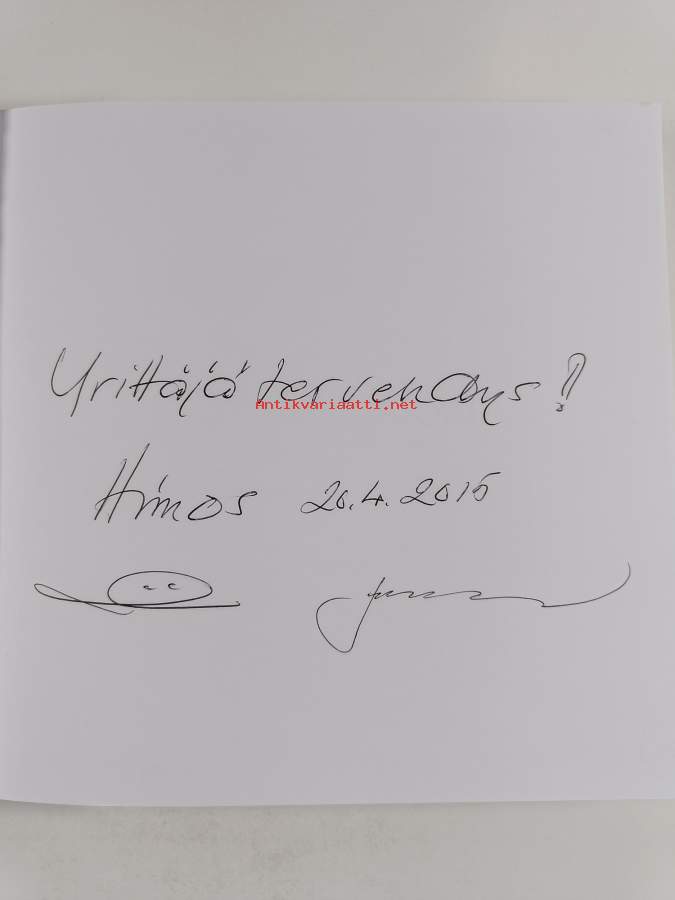 Yrittäjä tervehdys!
Antikvariaatti.net
Himos 20.4.2015